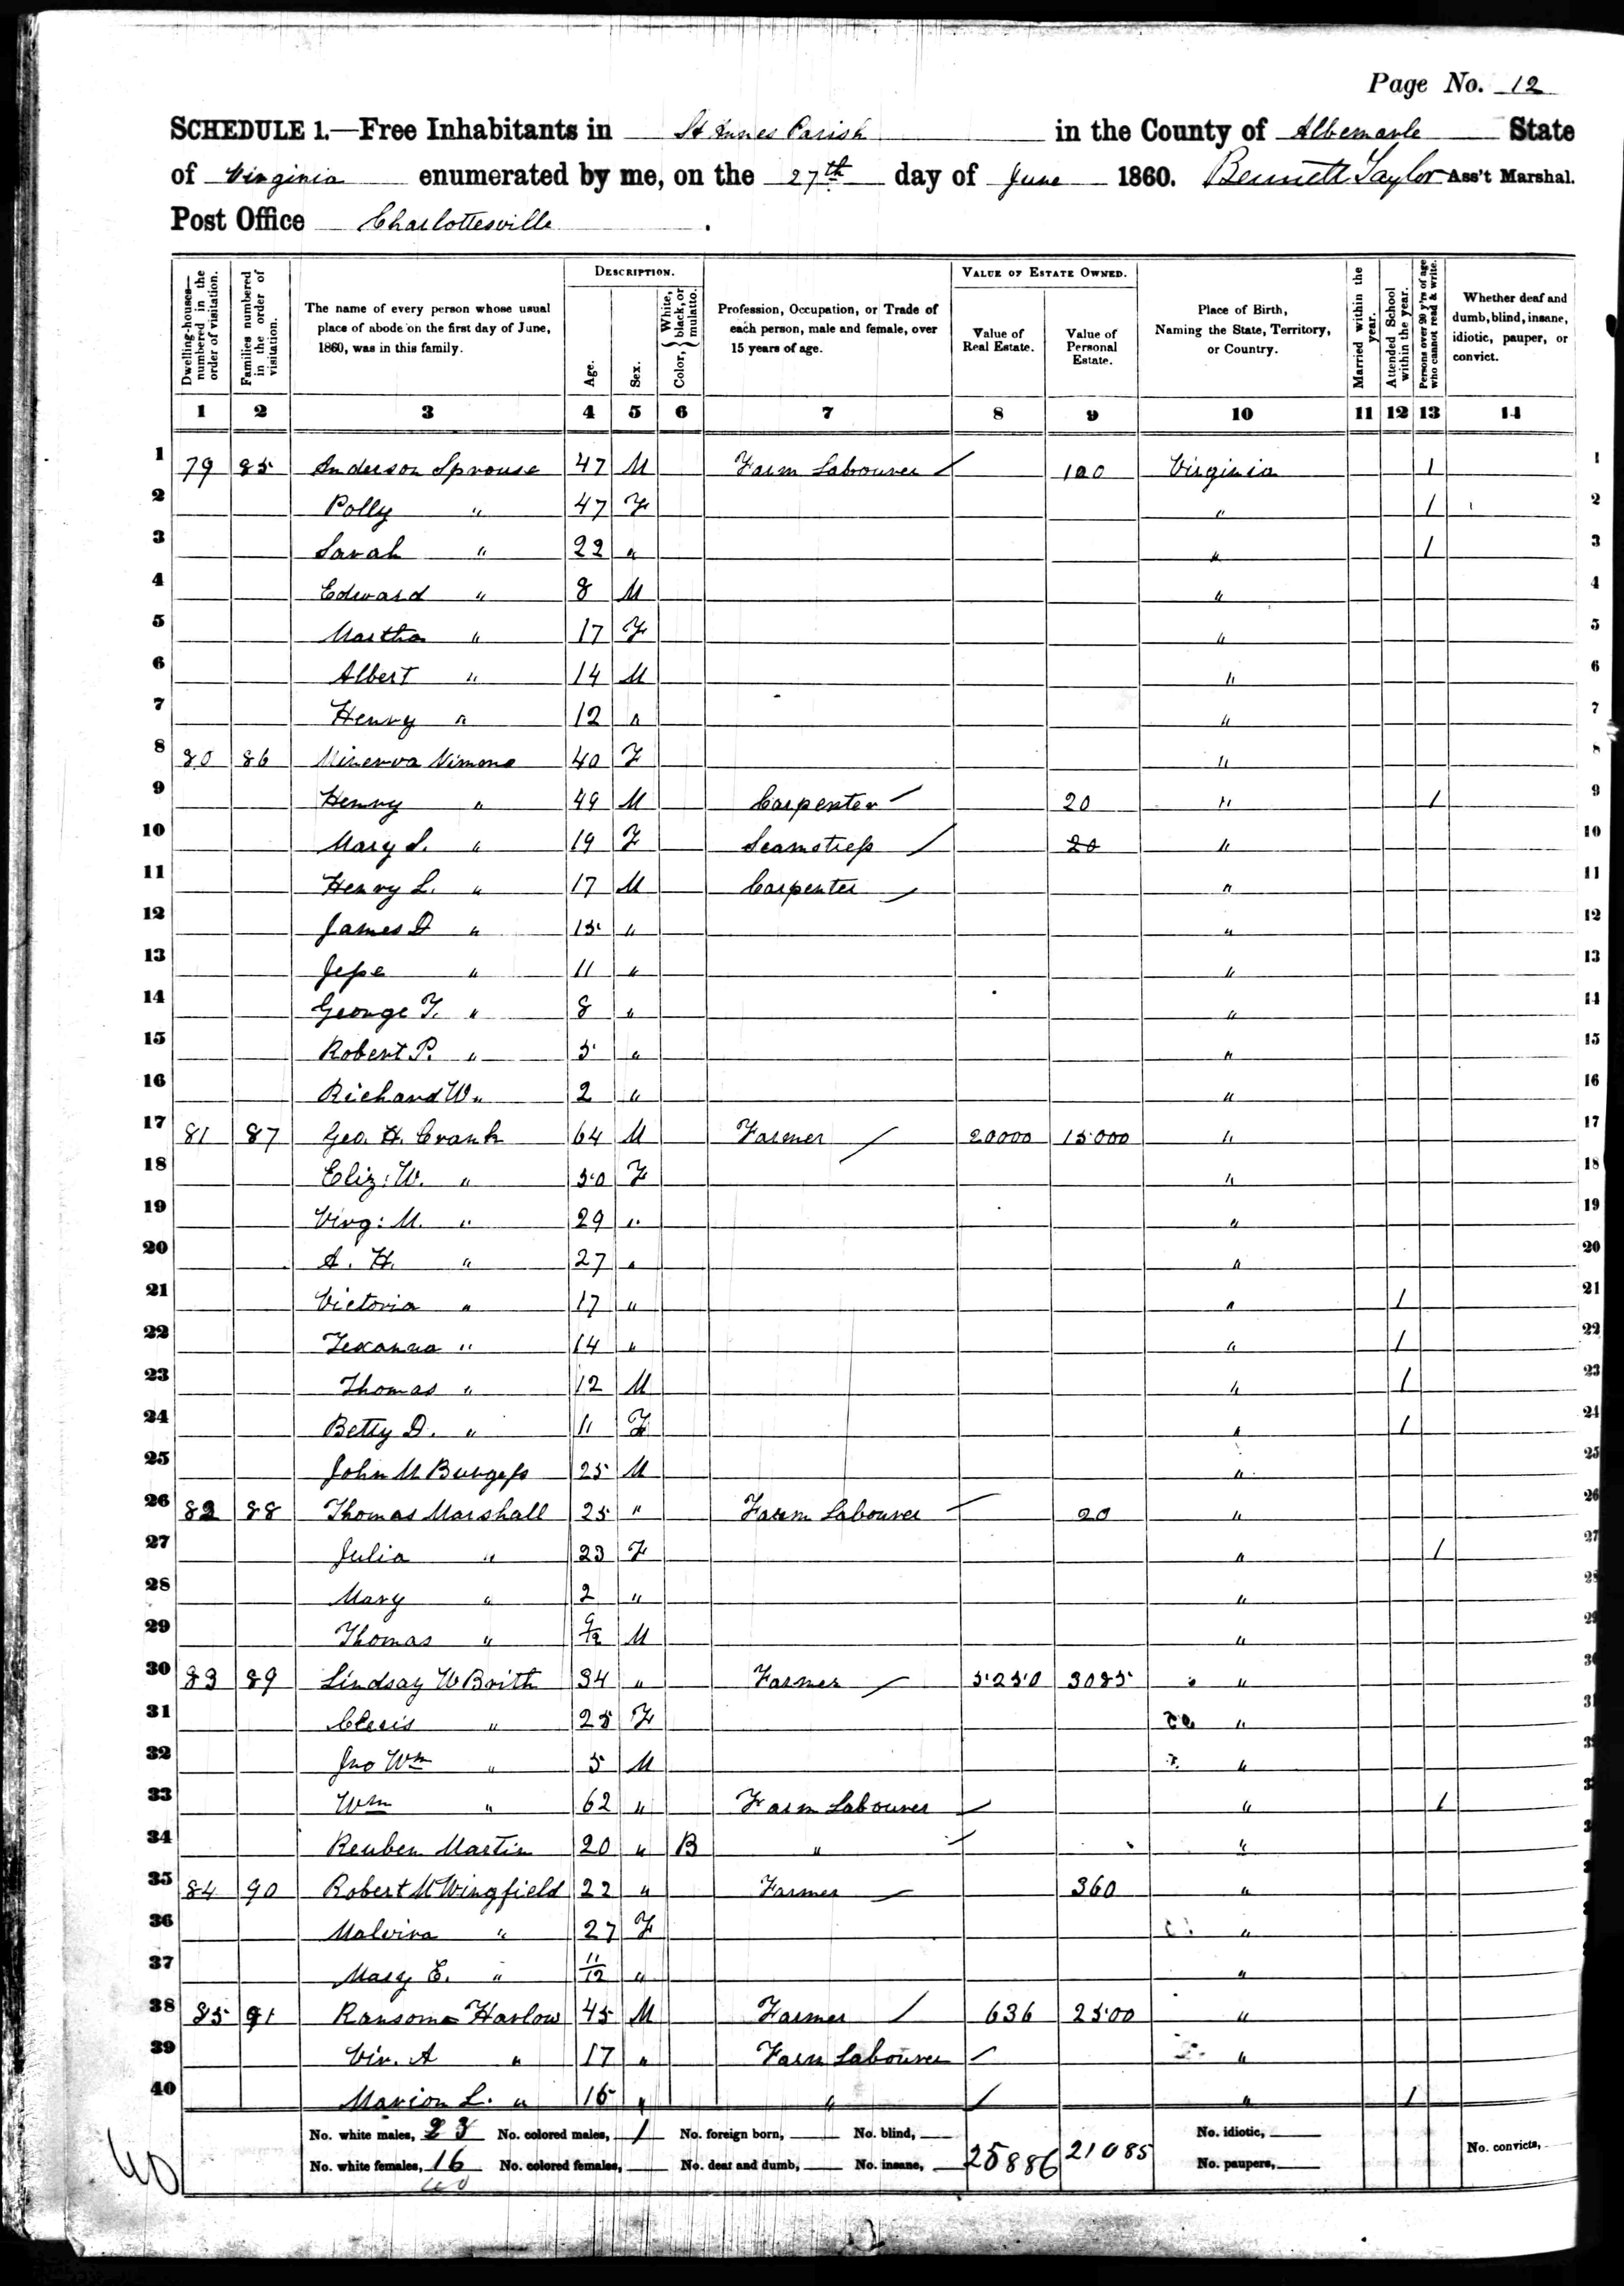 Page No. 12
SCHEDULE 1.—Free Inhabitants in St Annes Parish in the County of Albemarle State
of Virginia enumerated by me, on the 27th day of June 1860. Bennett Taylor Ass't Marshal.
Post Office Charlottesville.
DESCRIPTION. VALUE OF ESTATE OWNED.
Dwelling-houses— numbered in the order of visitation. Families numbered in the order of visitation. The name of every person whose usual place of abode on the first day of June, 1860, was in this family. Age. Sex. Color, { White, black, or mulatto. Profession, Occupation, or Trade of each person, male and female, over 15 years of age. Value of Real Estate. Value of Personal Estate. Place of Birth, Naming the State, Territory, or Country. Married within the year. Attended School within the year. Persons over 20 y'rs of age who cannot read & write. Whether deaf and dumb, blind, insane, idiotic, pauper, or convict.
1 2 3 4 5 6 7 8 9 10 11 12 13 14
1 79 85 Anderson Sprouse 47 M Farm Labourer 100 Virginia / 1
2 Polly " 47 F " / 2
3 Sarah " 22 " " / 3
4 Edward " 8 M " 4
5 Martha " 17 F " 5
6 Albert " 14 M " 6
7 Henry " 12 " " 7
8 80 86 Minerva 40 F " 8
9 Henry " 49 M Carpenter 20 " / 9
10 Mary S. " 19 F Seamstress 20 " 10
11 Henry L. " 17 M Carpenter " 11
12 James D " 15 " " 12
13 Jesse " 11 " " 13
14 George T. " 8 " " 14
15 Robert P. " 5 " " 15
16 Richard W " 2 " " 16
17 81 87 Geo. H. Crank 64 M Farmer 20000 15000 " 17
18 Eliz: W. " 50 F " 18
19 Virg: M. " 29 " " 19
20 A. H. " 27 " " 20
21 Victoria " 17 " " / 21
22 Texanna " 14 " " / 22
23 Thomas " 12 M " / 23
24 Betty D. " 11 F " / 24
25 John M Burgess 25 M " 25
26 82 88 Thomas Marshall 25 " Farm Labourer 20 " 26
27 Julia " 23 F " / 27
28 Mary " 2 " " 28
29 Thomas " 9/12 M " 29
30 83 89 Lindsay W 34 " Farmer 5250 3085 "
31 " 25 F "
32 Jno Wm " 5 M "
33 Wm " 62 " Farm Labourer " /
34 Reuben Martin 20 " B " "
35 84 90 Robert M Wingfield 22 " Farmer 360 "
36 Malvina " 27 F "
37 Mary E. " 11/12 " "
38 85 91 Ransome Harlow 45 M Farmer 636 2500 "
39 Vir. A " 17 " Farm Labourer "
40 Marion L. " 15 " " " /
No. white males, 23 No. colored males, 1 No. foreign born, No. blind, 25886 21085 No. idiotic,
No. white females, 16 No. colored females, No. deaf and dumb, No. insane, No. paupers, No. convicts,
40
40